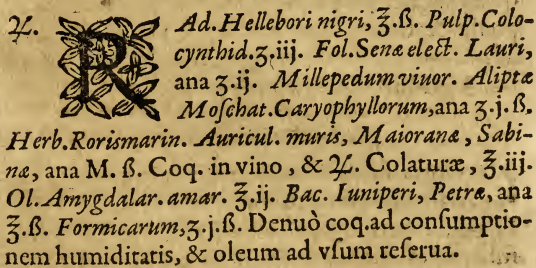 ♃. RAd. Hellebori nigri, ℥.ß. Pulp. Colo-
cynthid. ʒ.iij. Fol. Senæ elect. Lauri,
ana ʒ.ij. Millepedum viuor. Aliptæ
Moſchat. Caryophyllorum, ana ʒ.j.ß.
Herb. Rorismarin. Auricul. muris, Maioranæ, Sabi-
næ, ana M. ß. Coq. in vino, & ♃. Colaturæ, ℥.iij.
Ol. Amygdalar. amar. ℥.ij. Bac. Iuniperi, Petræ, ana
℥.ß. Formicarum, ʒ.j.ß. Denuò coq. ad conſumptio-
nem humiditatis, & oleum ad vſum reſerua.